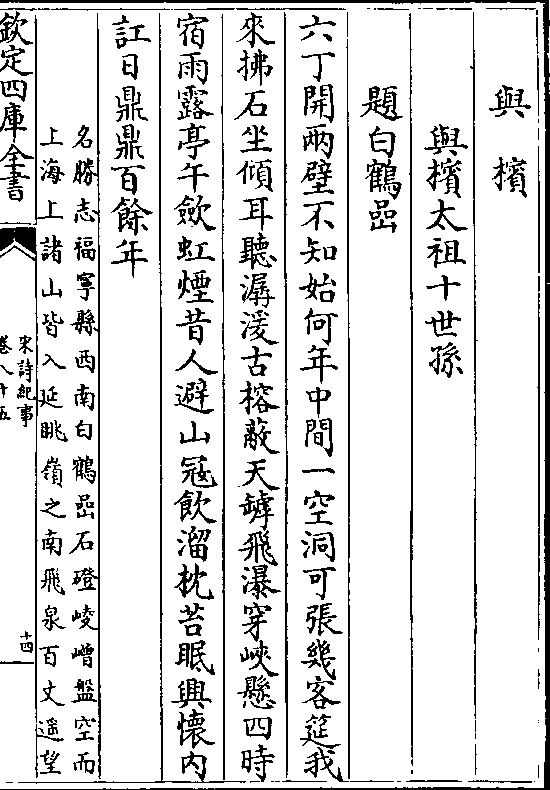 與檳
與檳太祖十世孫
題白鶴嵒
六丁開兩壁不知始何年中間一空洞可張幾客筵我
來拂石坐傾耳聽潺湲古榕蔽天罅飛瀑穿峽懸四時
宿雨露亭午歛虹煙昔人避山冦飲溜枕苔眠興懷内
訌日鼎鼎百餘年
名勝志福寧縣西南白鶴嵒石磴崚嶒盤空而
上海上諸山皆入延眺嶺之南飛泉百丈遥望
欽定四庫全書
宋詩紀事
卷八十五
十四